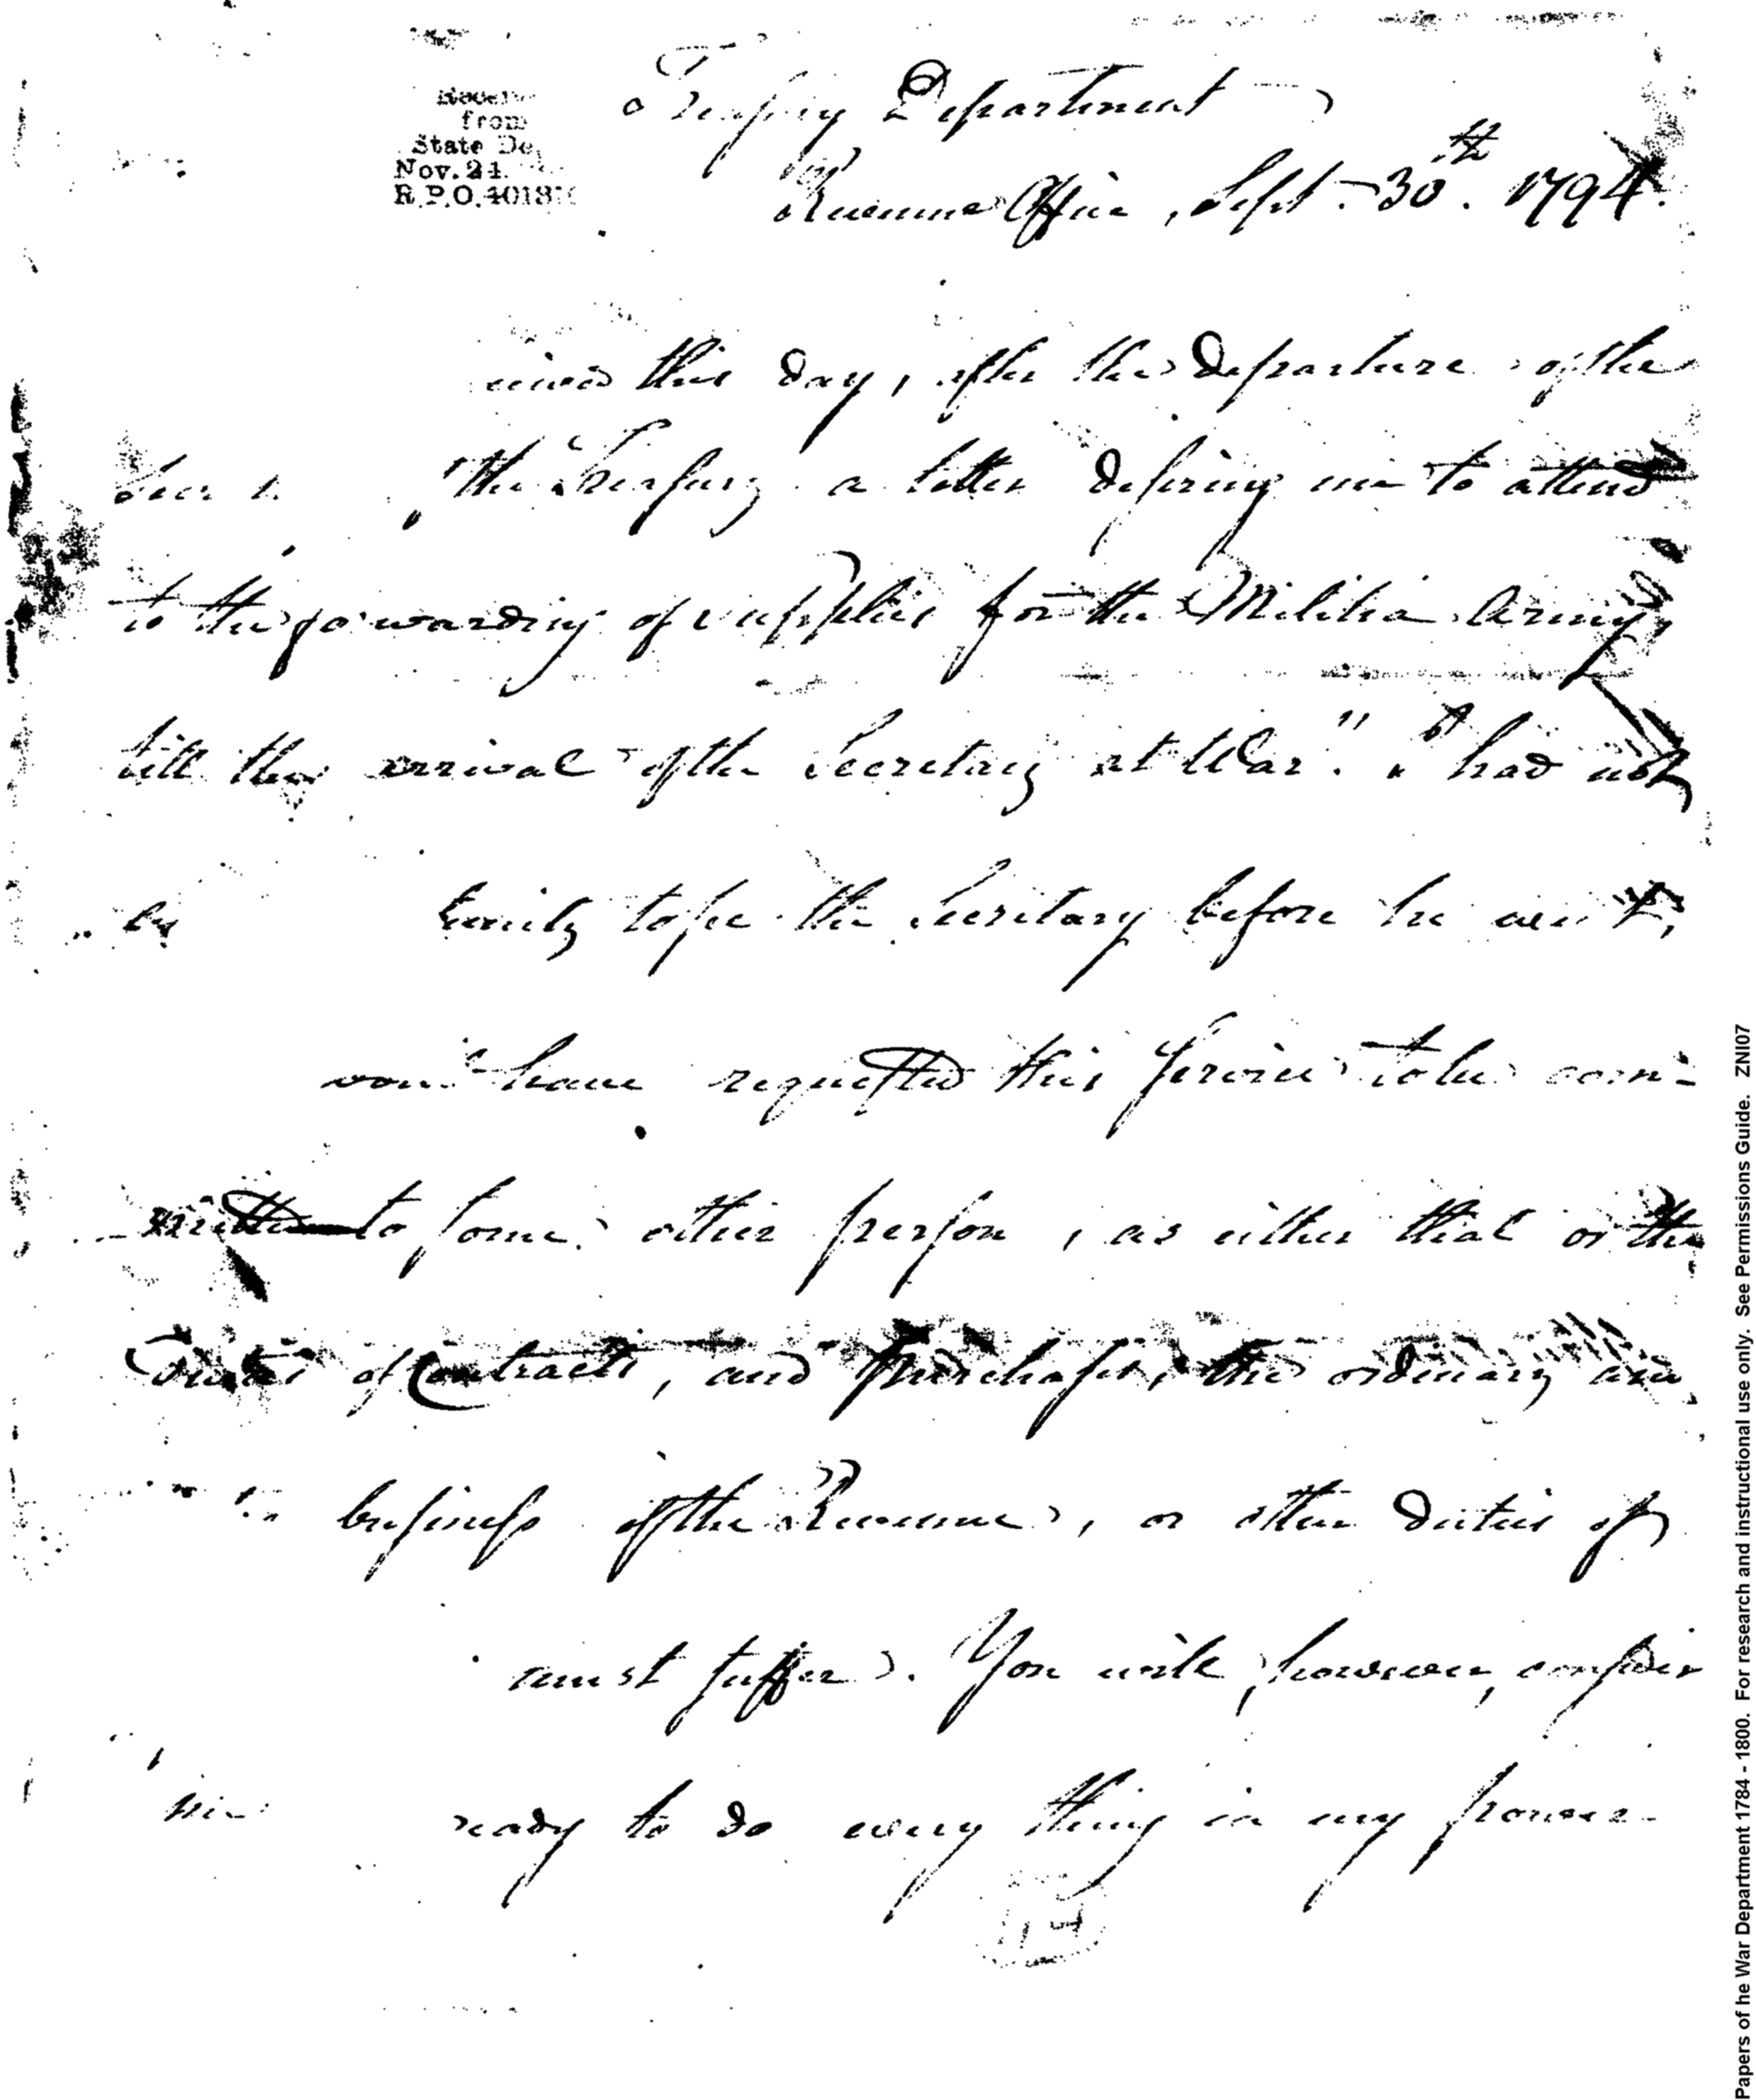 Treasury Department
Revenue Office, Sept. 30th. 1794.
from
State De
Nov. 21.
R.P.O.
this day, after the Departure of the
the Treasury a letter desiring me to attend
to the forwarding of supplies for the Militia Army,
till the arrival of the Secretary at War." I had not
to see the Secretary before he went,
have requested this Service to be com-
mitted to some other person, as either that or the
Duties of Contracts, and Purchases, the ordinary
business of the Revenue, or other Duties of
must suffer. You will, however, consider
ready to do every thing in my power
Papers of he War Department 1784 - 1800. For research and instructional use only. See Permissions Guide. ZNI07